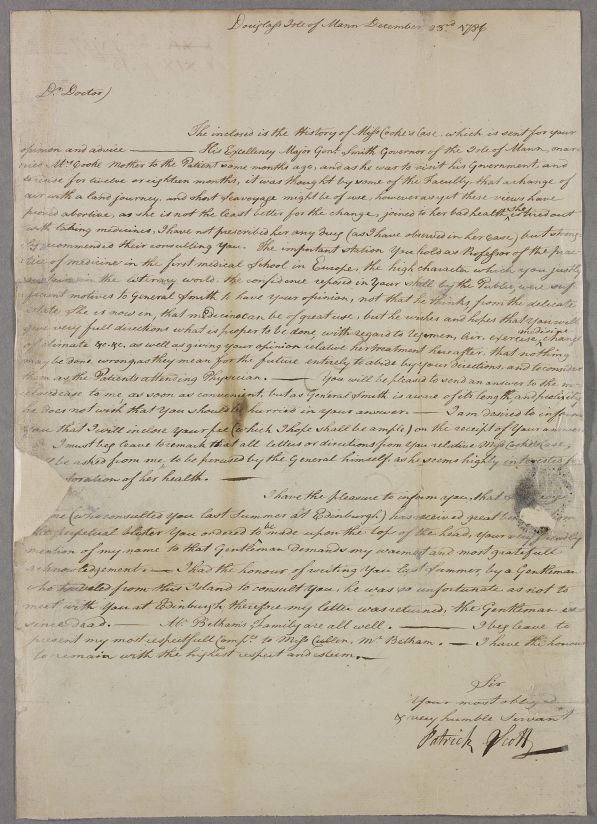 Douglass Isle of Mann December 23.d 1786
Dr. Doctor)
The inclosed is the History of Miss Cooke's Case, which is sent for your
opinion and advice — His Excellency Major Genl. Smith Governor of the Isle of Mann, mar
ried Mrs. Cooke Mother to the Patient some months ago, and as he was to visit his Government, and
to reside for twelve or eighteen months, it was thought by some of the Faculty that a change of
air with a land journey, and short sea voyage might be of use, however as yet these views have
proved abortive, as she is not the least better for the change, joined to her bad health she is tired out
with taking medicines, I have not prescribed her any drug (as I have observed in her case) but strong
ly recommended their consulting You. The important station You hold as Professor of the Prac
tice of medicine in the first medical School in Europe, the high character which you justly
in the literary world, the confidence reposed in Your skill by the Public, were suf
ficient motives to General Smith to have your opinion, not that he thinks from the delicate
state She is now in, that medicine can be of great use, but he wishes and hopes that You will
give very full directions what is proper to be done, with regard to regimen, air, exercise, change
of climate &c. &c. as well as giving your opinion relative her treatment hereafter, that nothing
may be done wrong, as they mean for the future entirely to abide by Your directions, and to consider
them as the Patients attending Physician. — You will be pleased to send an answer to the in
closed case to me, as soon as convenient, but as General Smith is aware of its length, and prolixity
he does not wish that You should be hurried in your answer. — I am desired to inform
you that I will inclose Your fee (which I hope shall be ample) on the receipt of Your answer
I must beg leave to remark that all letters or directions from You relative Miss Cooke's Case,
be asked from me to be perused by the General himself, as he seems highly interested for
of her health. —
I have the pleasure to inform you, that
(who consulted you last Summer at Edinburgh) has received great
perpetual blister You ordered to be made upon the top of the head, Your very friendly
mention of my name to that Gentleman demands my warmest and most gratefull
acknowledgement. — I had the honour of writing You last Summer, by a Gentleman
who travelled from this Island to consult You, he was so unfortunate as not to
meet with You at Edinburgh therefore my letter was returned, the Gentleman is
since dead. — Mr. Betham's Family are all well. — I beg leave to
present my most respectfull Compts. to Miss Cullen, Mr. Betham. — I have the honour
to remain with the highest respect and esteem. —
Sir
Your most obliged
& very humble Servant
Patrick Scott